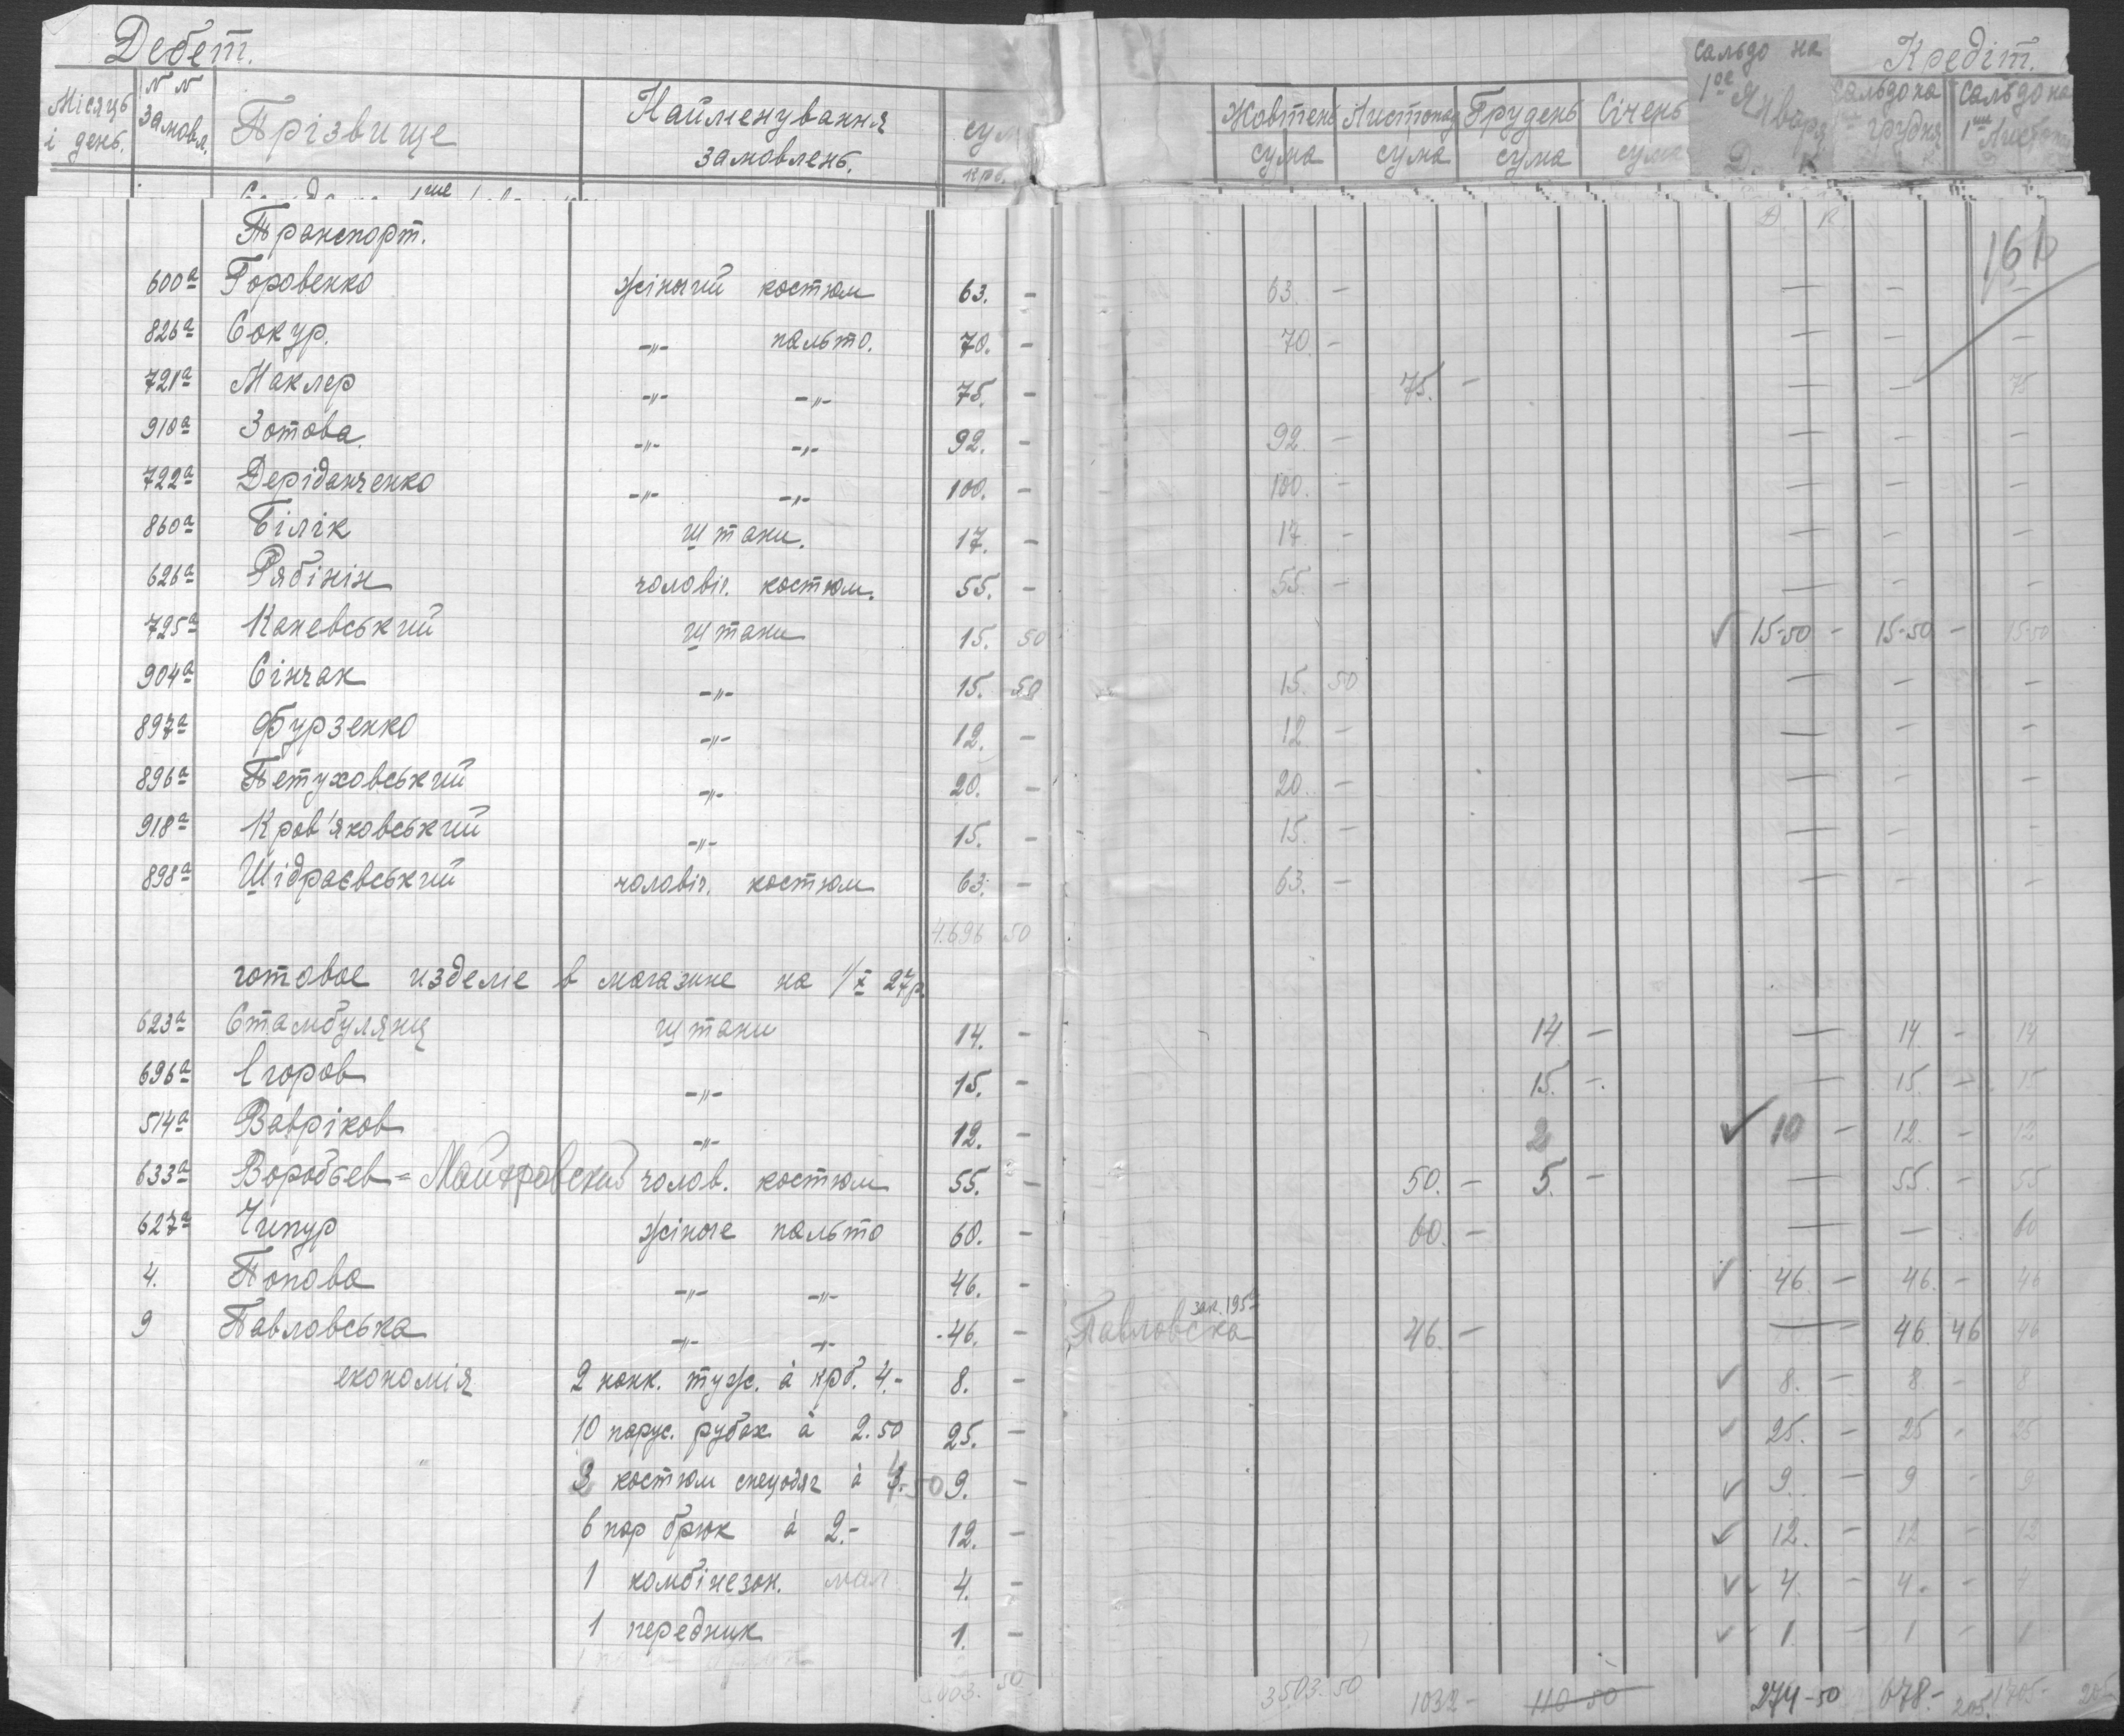 Дебет.
Кредіт.
Місяць і день.
N N замовл.
Прізвище
Найменування замовлень.
сум
крб.
Жовтень сума
Листопад сума
Грудень сума
Січень сума
сальдо на 1ое Января Д. К
сальдо на грудня
сальдо на 1ше Листоп
Транспорт. Д. К 161
600а Горовенко жіночий костюм 63. - 63. - - - -
826а Сокур. -"- пальто. 70. - 70. - - - -
721а Маклер -"- -"- 75. - 75. - - - 75
910а Зотова. -"- -"- 92. - 92 - - - -
722а Деріданченко -"- -"- 100. - 100. - - - -
860а Білік штани. 17. - 17. - - - -
626а Рябінін чоловіч. костюм. 55. - 55. - - - -
725а Каневський штани 15. 50 ✓ 15-50 - 15-50 - 15-50
904а Сінчак -"- 15. 50 15. 50 - - -
897а Фурзенко -"- 12. - 12 - - - -
896а Петуховський -"- 20. - 20. - - - -
918а Кров'яковський -"- 15. - 15. - - - -
898а Шідраєвський чоловіч. костюм 63. - 63. - - - -
4.696 50
готовое изделіе в магазине на 1/X 27р.
623а Стамбулянц штани 14. - 14 - - 14. - 14
696а Єгоров -"- 15. - 15. - - 15. - 15
514а Вавріков -"- 12. - 2 ✓ 10 - 12. - 12
633а Воробьев = чолов. костюм 55. - 50. - 5. - - 55. - 55
627а Чипур жіноче пальто 60. - 60. - - - 60
4. Попова -"- -"- 46. - ✓ 46 - 46. - 46
9 Павловська -"- -"- 46. - Павловска зак. 195 46. - - 46 46 46
економія 2 конк. туж. à крб. 4.- 8. - ✓ 8. - 8 - 8
10 парус. рубах à 2.50 25. - ✓ 25. - 25 - 25
костюм спецодяг à 9. - ✓ 9. - 9 - 9
6 пар брюк à 2.- 12. - ✓ 12. - 12 - 12
1 комбінезон. 4. - ✓ 4. - 4. - 4
1 передник 1. - ✓ 1. - 1 - 1
50 3503. 50 1032 - 110 50 274-50 678.- 205. 1705-